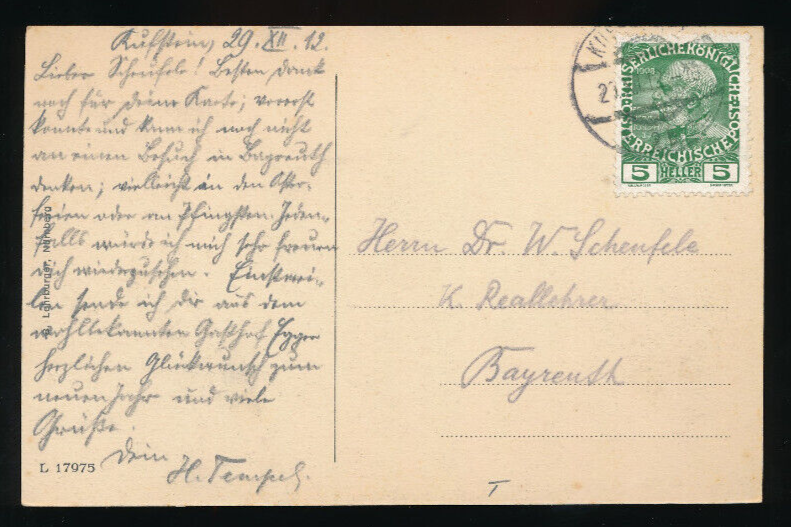 Kufstein, 29. XII. 12.
Lieber Scheufele! Besten Dank
noch für Deine Karte; vorerst
konnte und kann ich noch nicht
an einen Besuch in Bayreuth
denken; vielleicht in den Oster-
ferien oder an Pfingsten. Jeden-
falls würde ich mich sehr freuen
dich wiederzusehen. Einstwei-
len sende ich dir aus dem
wohlbekannten Gasthof Egger
herzlichen Glückwunsch zum
neuen Jahr und viele
Grüße.
Dein
H. Tempel.
L 17975
Lohrburger, Nürnberg
KAISERLICHE KÖNIGLICHE
ÖSTERREICHISCHE POST
1908
5 HELLER 5
Herrn Dr. W. Scheufele
K. Reallehrer
Bayreuth